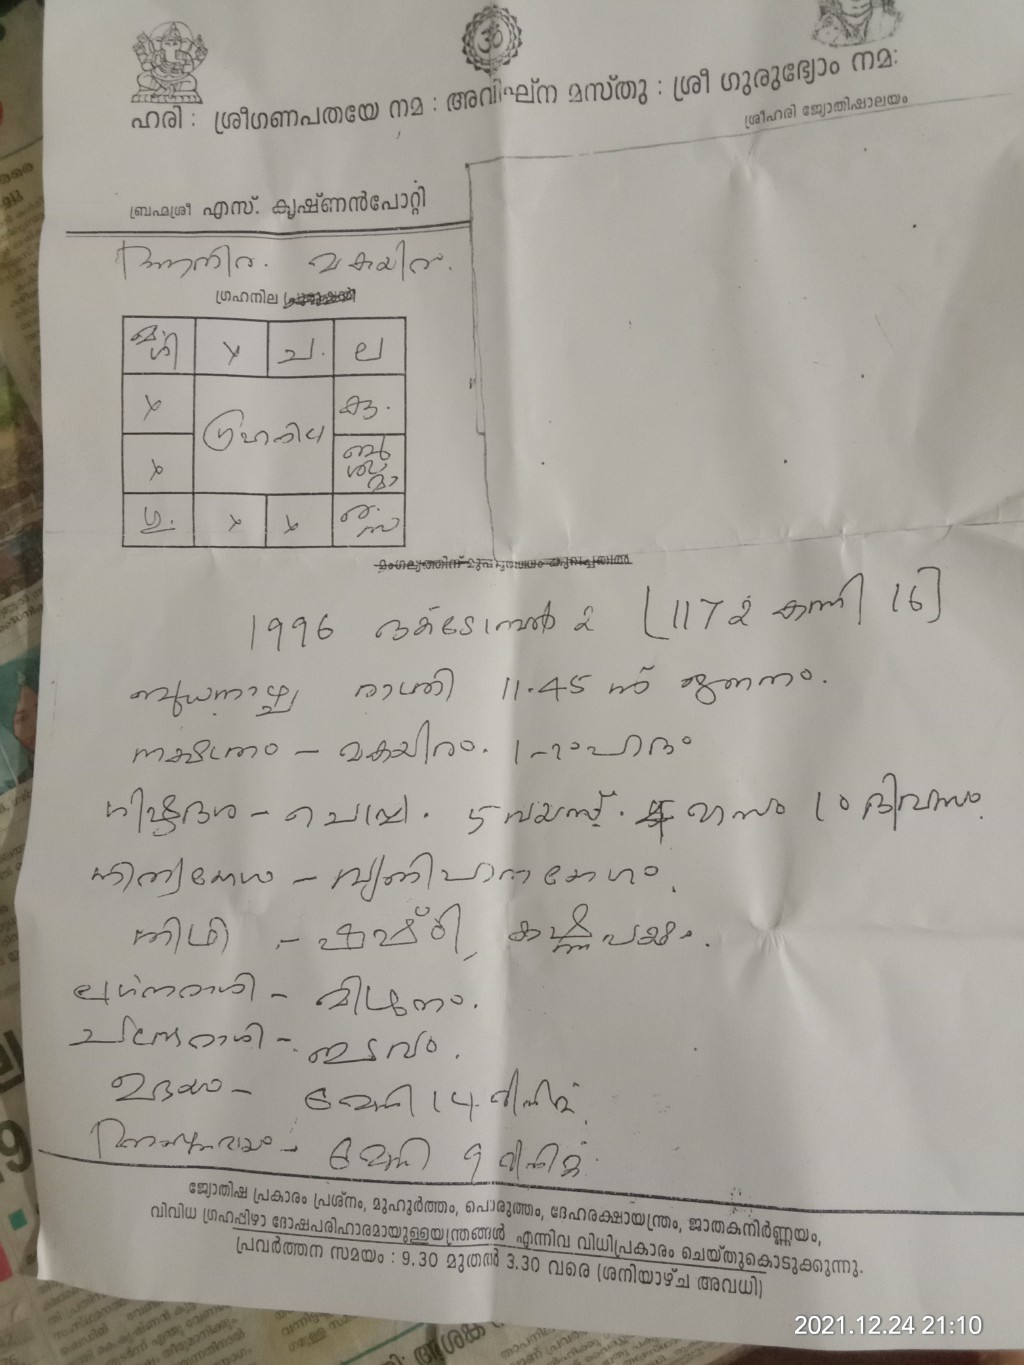 ഹരി : ശ്രീഗണപതയേ നമ : അവിഘ്ന മസ്തു : ശ്രീ ഗുരുഭ്യോം നമ:
ശ്രീഹരി ജ്യോതിഷാലയം
ബ്രഹ്മശ്രീ എസ്. കൃഷ്ണൻപോറ്റി
മകയിരം.
ഗ്രഹനില
x ച. ല
x ഗ്രഹനില കു.
x
ഗു. x x
1996 ഒക്ടോബർ 2 [1172 കന്നി 16]
ബുധനാഴ്ച രാത്രി 11.45 ന് ജനനം.
നക്ഷത്രം - മകയിരം. 1-ാംപാദം
ശിഷ്ടദശ - ചൊവ്വ. 5 വയസ്സ്. മാസം 10 ദിവസം.
നിത്യയോഗം - വ്യതീപാതയോഗം.
തിഥി - ഷഷ്ഠി, കൃഷ്ണപക്ഷം.
ലഗ്നരാശി - മിഥുനം.
ചന്ദ്രരാശി - ഇടവം.
ഉദയം - 6 മണി 14 മിനിട്ട്
അസ്തമയം - 6 മണി 9 മിനിട്ട്
ജ്യോതിഷ പ്രകാരം പ്രശ്നം, മുഹൂർത്തം, പൊരുത്തം, ദേഹരക്ഷായന്ത്രം, ജാതകനിർണ്ണയം,
വിവിധ ഗ്രഹപ്പിഴാ ദോഷപരിഹാരമായുള്ളയന്ത്രങ്ങൾ എന്നിവ വിധിപ്രകാരം ചെയ്തുകൊടുക്കുന്നു.
പ്രവർത്തന സമയം : 9.30 മുതൽ 3.30 വരെ (ശനിയാഴ്ച അവധി)
2021.12.24 21:10